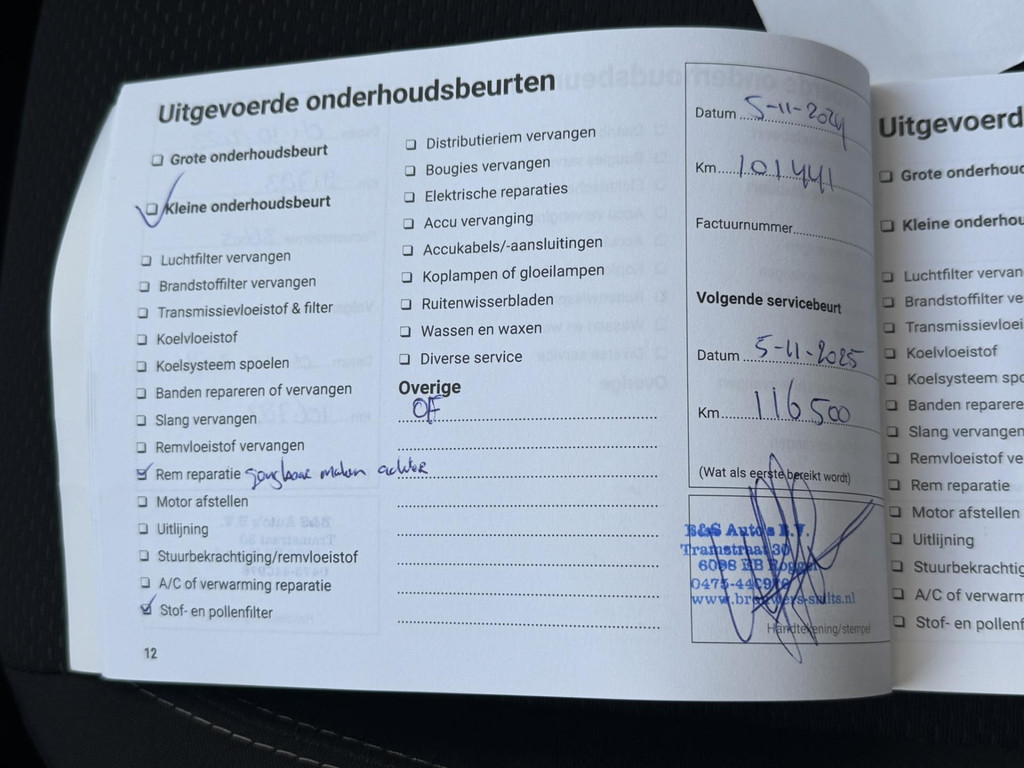 Uitgevoerde onderhoudsbeurten
Grote onderhoudsbeurt
Kleine onderhoudsbeurt
Luchtfilter vervangen
Brandstoffilter vervangen
Transmissievloeistof & filter
Koelvloeistof
Koelsysteem spoelen
Banden repareren of vervangen
Slang vervangen
Remvloeistof vervangen
Rem reparatie gangbaar maken achter
Motor afstellen
Uitlijning
Stuurbekrachtiging/remvloeistof
A/C of verwarming reparatie
Stof- en pollenfilter
12
Distributieriem vervangen
Bougies vervangen
Elektrische reparaties
Accu vervanging
Accukabels/-aansluitingen
Koplampen of gloeilampen
Ruitenwisserbladen
Wassen en waxen
Diverse service
Overige
OF
Datum 5-11-2024
Km 101441
Factuurnummer
Volgende servicebeurt
Datum 5-11-2025
Km 116500
(Wat als eerste bereikt wordt)
B&S Auto's B.V.
Tramstraat 30
6088 EB Roggel
0475-440976
www.brouwers-smits.nl
Handtekening/stempel
Uitgevoerd
Grote onderhoud
Kleine onderhou
Luchtfilter vervan
Brandstoffilter ve
Transmissievloei
Koelvloeistof
Koelsysteem spo
Banden reparere
Slang vervangen
Remvloeistof ve
Rem reparatie
Motor afstellen
Uitlijning
Stuurbekrachtig
A/C of verwarm
Stof- en pollenf